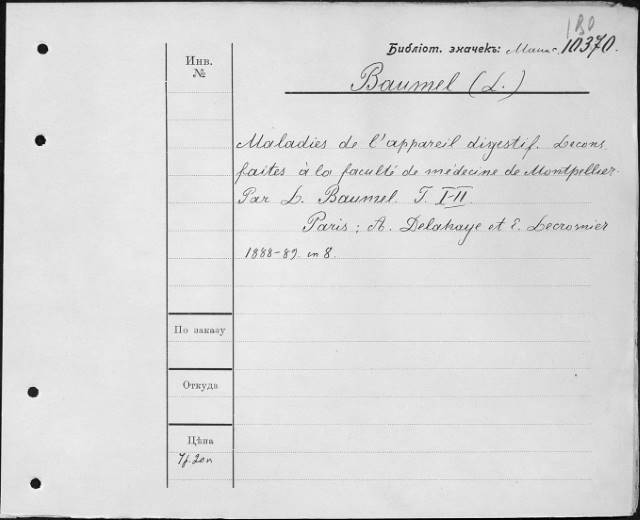 180
Библіот. значекъ: 10370.
Инв.
№
Baumel (L.)
Maladies de l'appareil digestif. Lecons
faites à la faculté de médecine de Montpellier.
Par L. Baumel. T. I-II
Paris; A. Delahaye et E. Lecrosnier
1888-89. in 8.
По заказу
Откуда
Цѣна